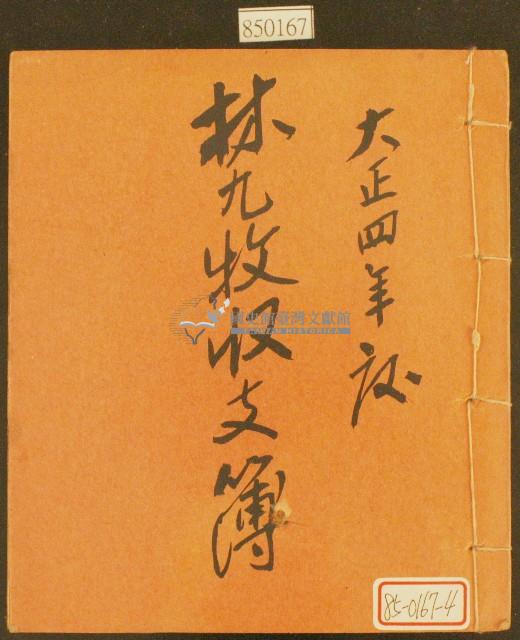 850167
大正四年設
林九牧收支簿
國史館臺灣文獻館
TAIWAN HISTORICA
85-0167-4